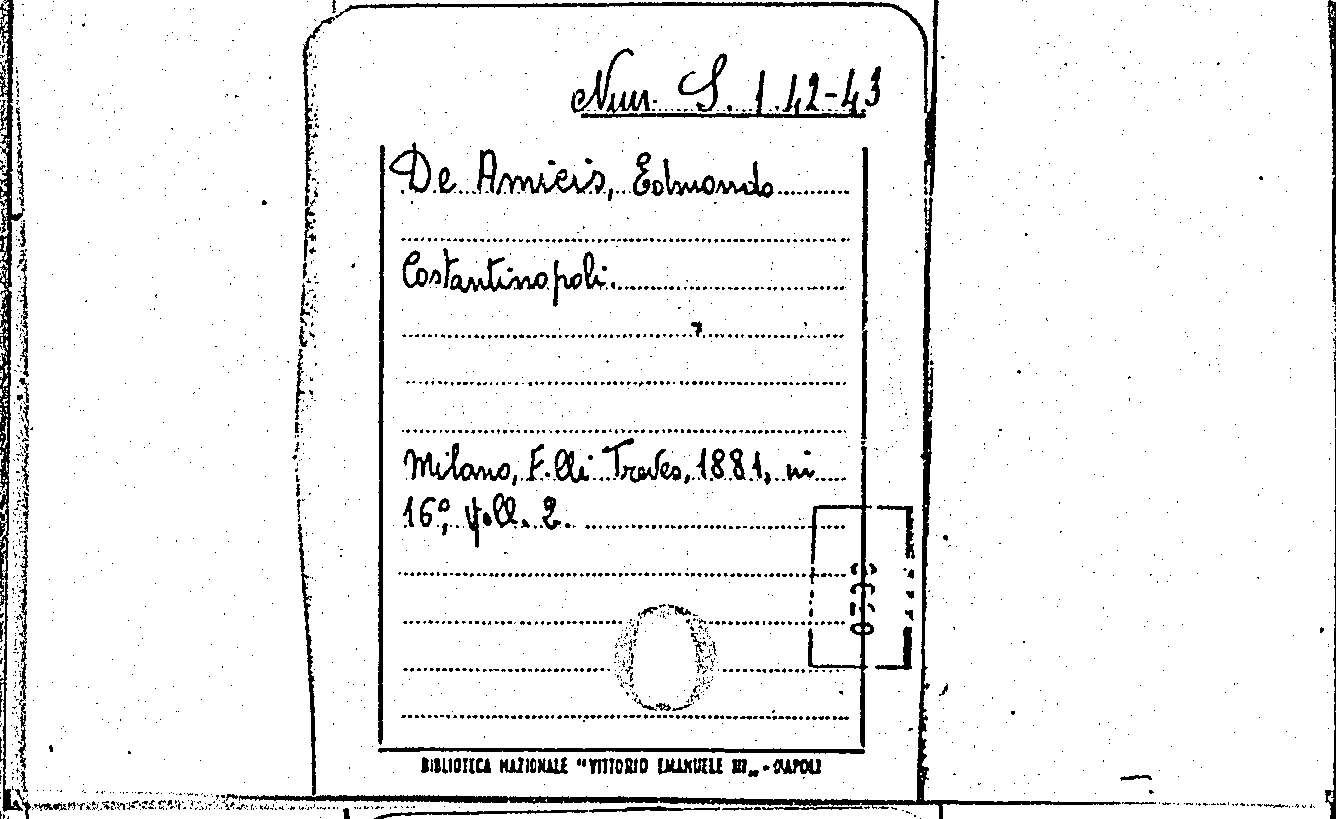 Nun. S. 1.42-43
De Amicis, Edmondo
Costantinopoli.
Milano, F.lli Treves, 1881, in
16°, voll. 2.
BIBLIOTECA NAZIONALE "VITTORIO EMANUELE III„ - NAPOLI